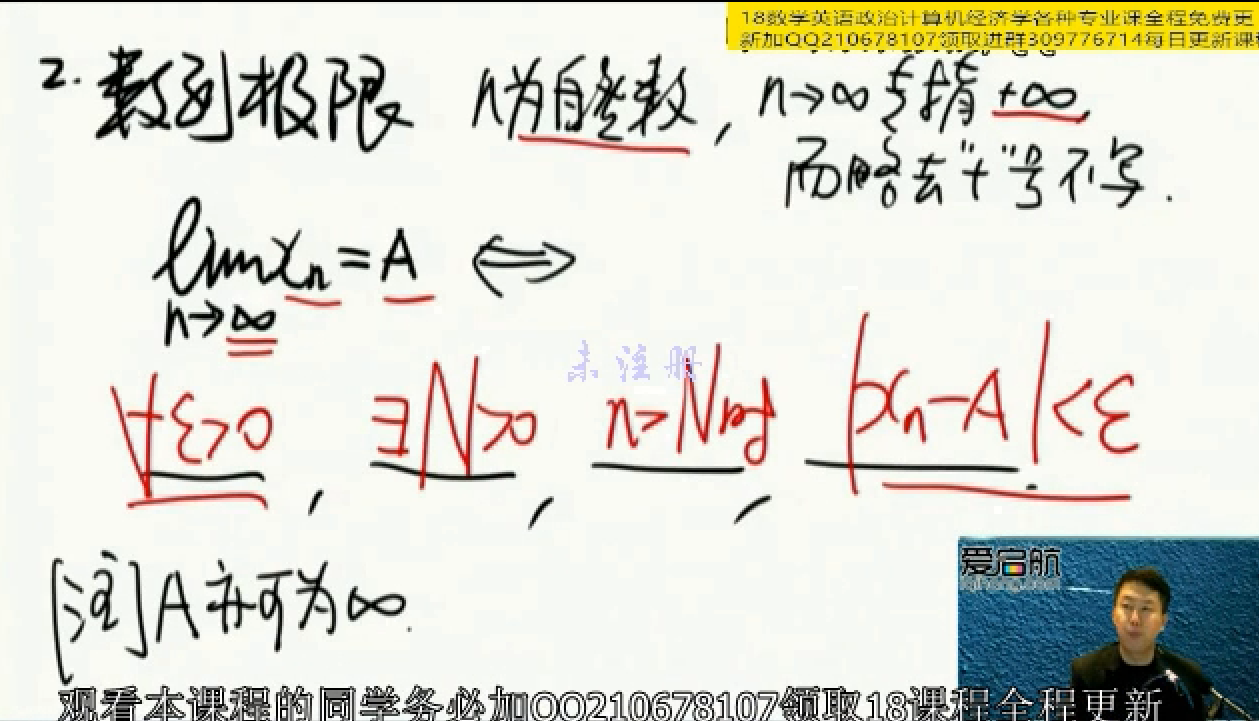 18数学英语政治计算机经济学各种专业课全程免费更
新加QQ210678107领取进群309776714每日更新课程
2. 数列极限 n为自然数, n→∞专指+∞,
而略去"+"号不写.
lim xₙ = A ⟺
n→∞
∀ε>0, ∃N>0, n>N时, |xₙ-A|<ε
未注册
[注] A亦可为∞.
爱启航
观看本课程的同学务必加QQ210678107领取18课程全程更新